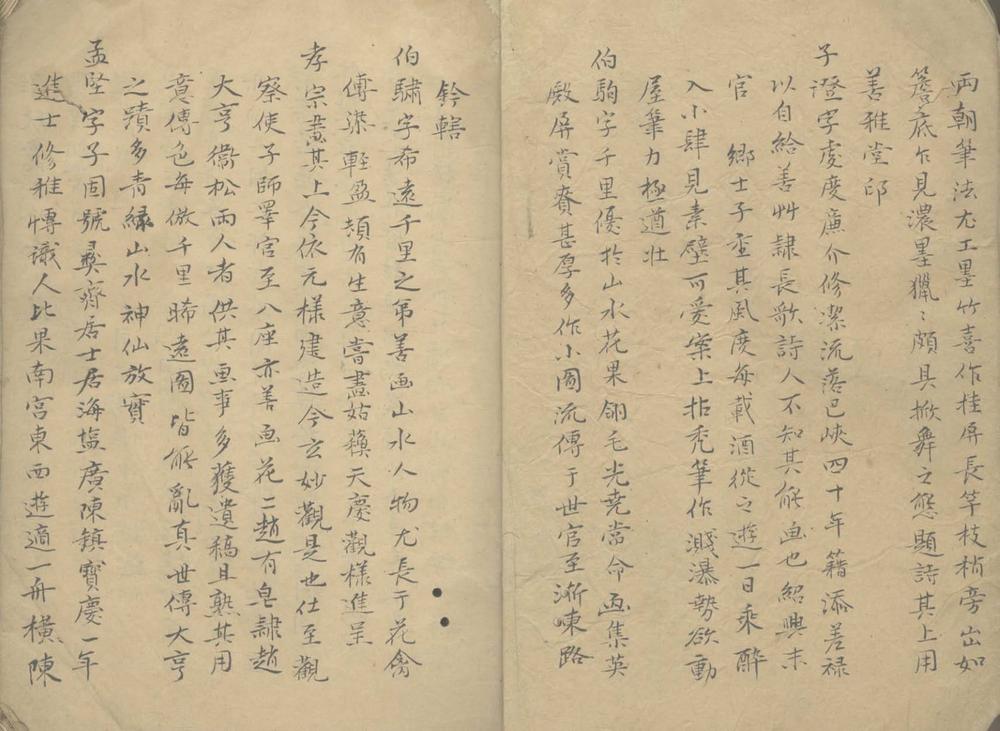 兩朝筆法尤工墨竹喜作挂屏長竿枝梢旁出如
簷底乍見濃墨獵〻頗具掀舞之態題詩其上用
善雅堂印
子澄字處度廉介修潔流落巴峽四十年籍添差祿
以自給善艸隸長歌詩人不知其能画也紹興末
官　鄉士子重其風度每載酒從之遊一日乘醉
入小肆見素壁可愛案上拈禿筆作濺瀑勢欲動
屋筆力極遒壮
伯駒字千里優扵山水花果翎毛光堯嘗命画集英
殿屏賞賚甚厚多作小圖流傳于世官至淅東路
鈐轄
伯驌字希遠千里之弟善画山水人物尤長于花禽
傅染輕盈頗有生意嘗畫姑蘓天慶觀樣進呈
孝宗畫其上今依元樣建造今玄妙觀是也仕至觀
察使子師睪官至八座亦善画花二趙有皂隷趙
大亨衞松兩人者供其画事多獲遺稿且熟其用
意傅色每倣千里晞遠圖皆能亂真世傳大亨
之蹟多青緑山水神仙放寳
孟堅字子固號彛齋居士居海塩廣陳鎮寳慶一年
進士修雅愽識人比果南宮東西遊適一舟橫陳